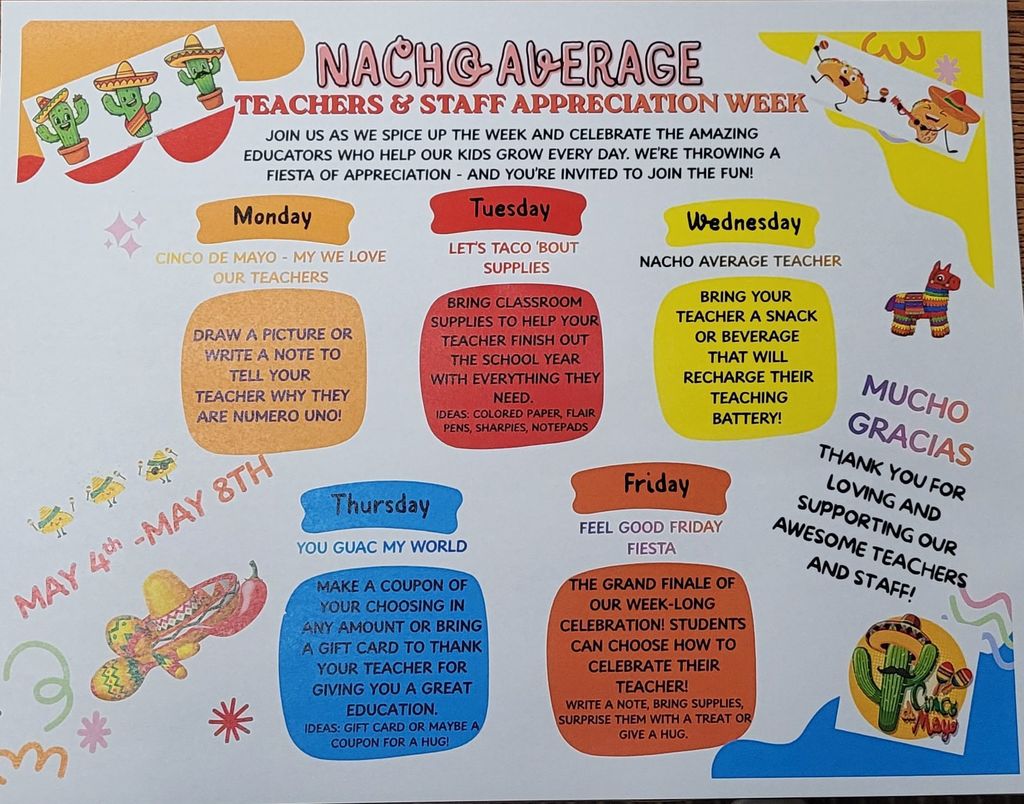 NACHO AVERAGE
TEACHERS & STAFF APPRECIATION WEEK
JOIN US AS WE SPICE UP THE WEEK AND CELEBRATE THE AMAZING
EDUCATORS WHO HELP OUR KIDS GROW EVERY DAY. WE'RE THROWING A
FIESTA OF APPRECIATION - AND YOU'RE INVITED TO JOIN THE FUN!
Monday
CINCO DE MAYO - MY WE LOVE
OUR TEACHERS
DRAW A PICTURE OR
WRITE A NOTE TO
TELL YOUR
TEACHER WHY THEY
ARE NUMERO UNO!
Tuesday
LET'S TACO 'BOUT
SUPPLIES
BRING CLASSROOM
SUPPLIES TO HELP YOUR
TEACHER FINISH OUT
THE SCHOOL YEAR
WITH EVERYTHING THEY
NEED.
IDEAS: COLORED PAPER, FLAIR
PENS, SHARPIES, NOTEPADS
Wednesday
NACHO AVERAGE TEACHER
BRING YOUR
TEACHER A SNACK
OR BEVERAGE
THAT WILL
RECHARGE THEIR
TEACHING
BATTERY!
MAY 4th - MAY 8TH
Thursday
YOU GUAC MY WORLD
MAKE A COUPON OF
YOUR CHOOSING IN
ANY AMOUNT OR BRING
A GIFT CARD TO THANK
YOUR TEACHER FOR
GIVING YOU A GREAT
EDUCATION.
IDEAS: GIFT CARD OR MAYBE A
COUPON FOR A HUG!
Friday
FEEL GOOD FRIDAY
FIESTA
THE GRAND FINALE OF
OUR WEEK-LONG
CELEBRATION! STUDENTS
CAN CHOOSE HOW TO
CELEBRATE THEIR
TEACHER!
WRITE A NOTE, BRING SUPPLIES,
SURPRISE THEM WITH A TREAT OR
GIVE A HUG.
MUCHO
GRACIAS
THANK YOU FOR
LOVING AND
SUPPORTING OUR
AWESOME TEACHERS
AND STAFF!
Cinco
de
Mayo